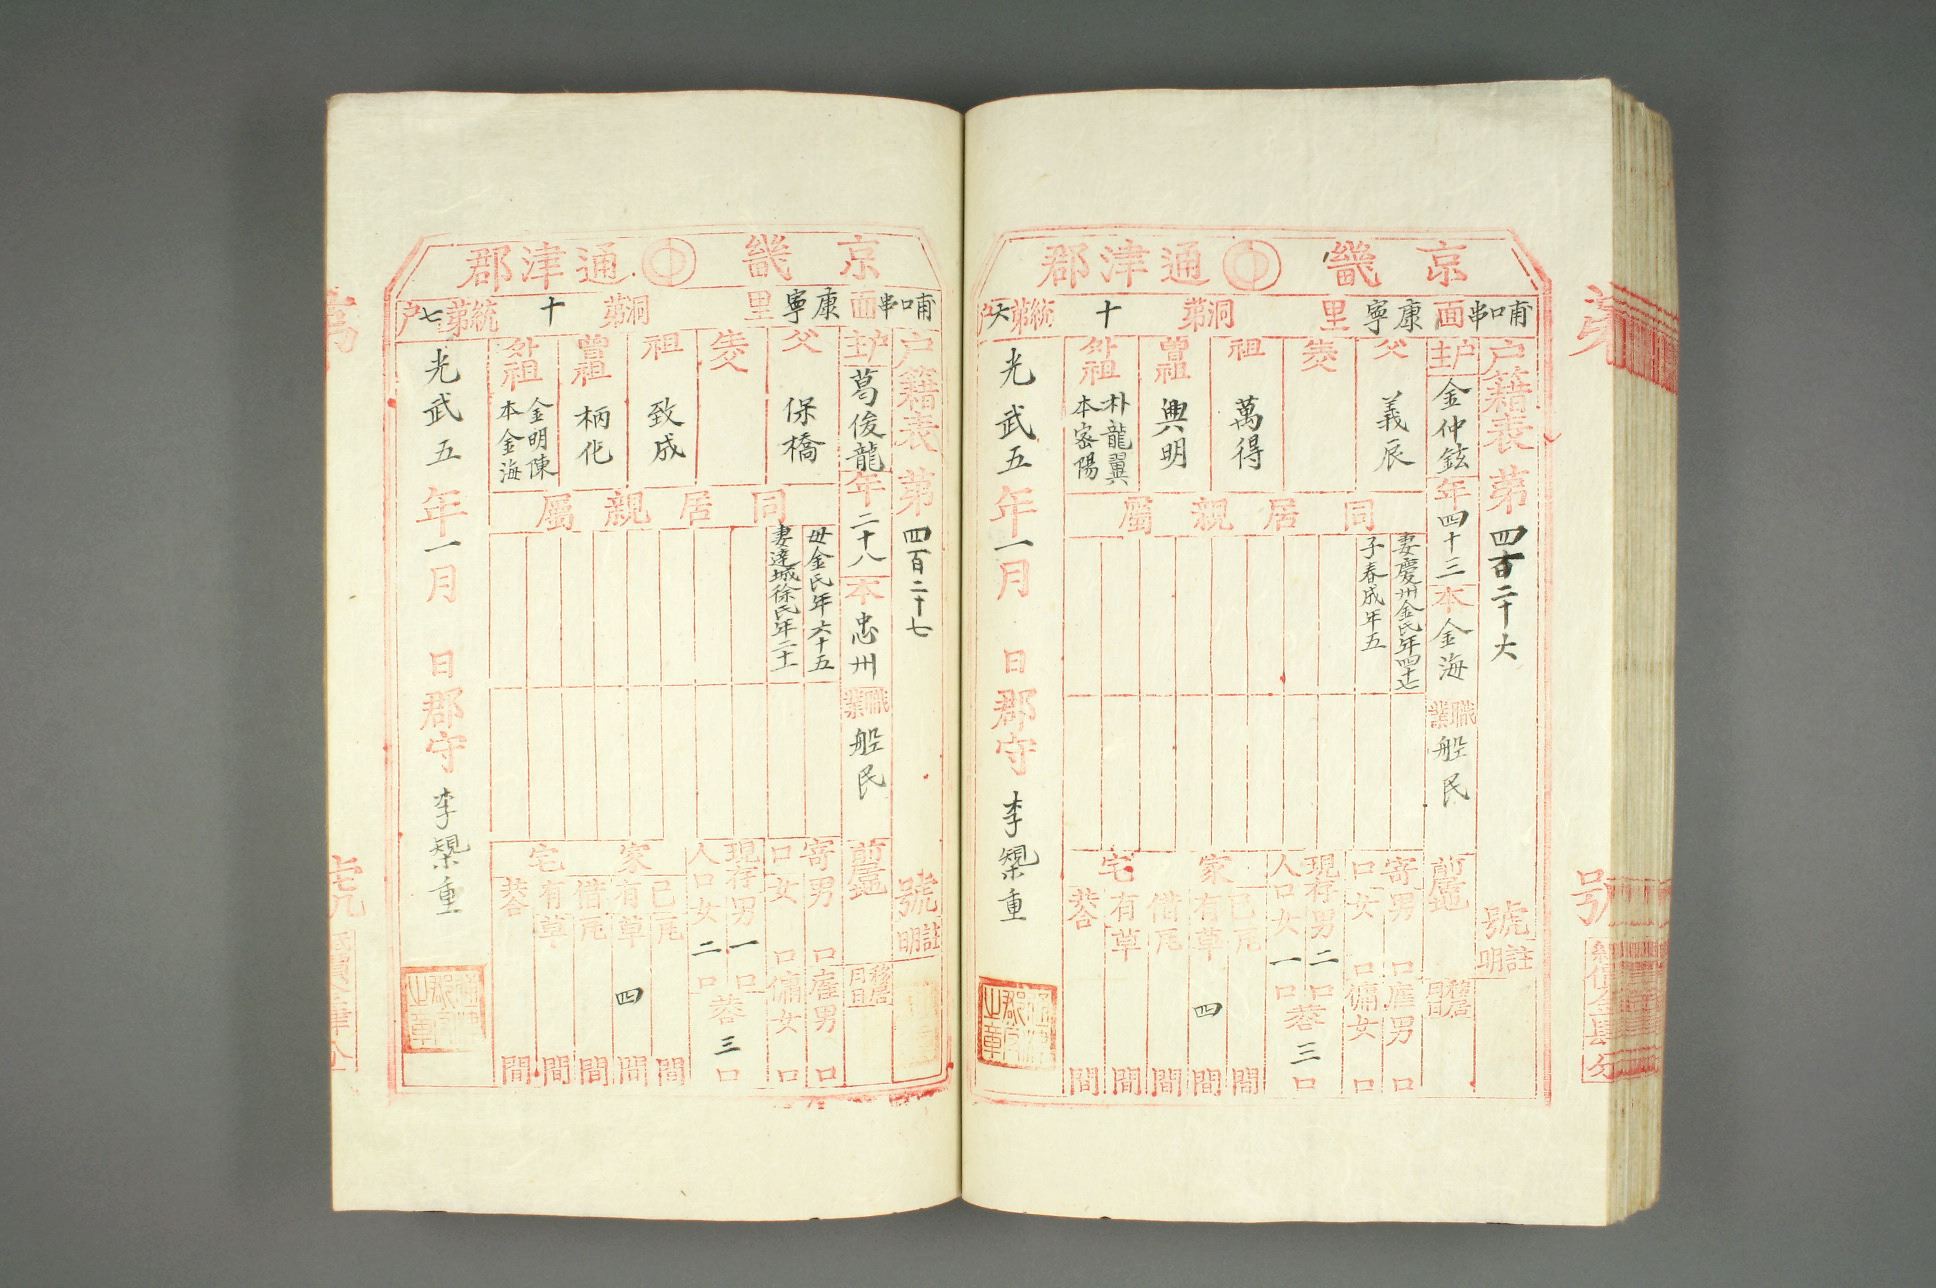 京畿 通津郡
哺口串面 康寧里 洞第 十 統第六戶
戶籍表 第 四百二十六 號 註明
戶主 金仲鉉 年四十三 本金海 職業 船民 前居地 移居月日
父 義辰
生父
祖 萬得
曾祖 興明
外祖 朴龍翼 本密陽
同居親屬
妻慶州金氏年四十七
子春成年五
寄口 男 口 女 口
雇傭 男 口 女 口
現存人口 男二口 女一口 共三口
家宅 己有 瓦 間 草 四間
借有 瓦 間 草 間
共 間
光武五年一月 日 郡守 李 重
通津郡守之章
京畿 通津郡
哺口串面 康寧里 洞第 十 統第七戶
戶籍表 第 四百二十七 號 註明
戶主 葛俊龍 年二十八 本忠州 職業 船民 前居地 移居月日
父 保橋
生父
祖 致成
曾祖 柄化
外祖 金明陳 本金海
同居親屬
母金氏年六十五
妻達城徐氏年二十二
寄口 男 口 女 口
雇傭 男 口 女 口
現存人口 男一口 女二口 共三口
家宅 己有 瓦 間 草 四間
借有 瓦 間 草 間
共 間
光武五年一月 日 郡守 李 重
通津郡守之章